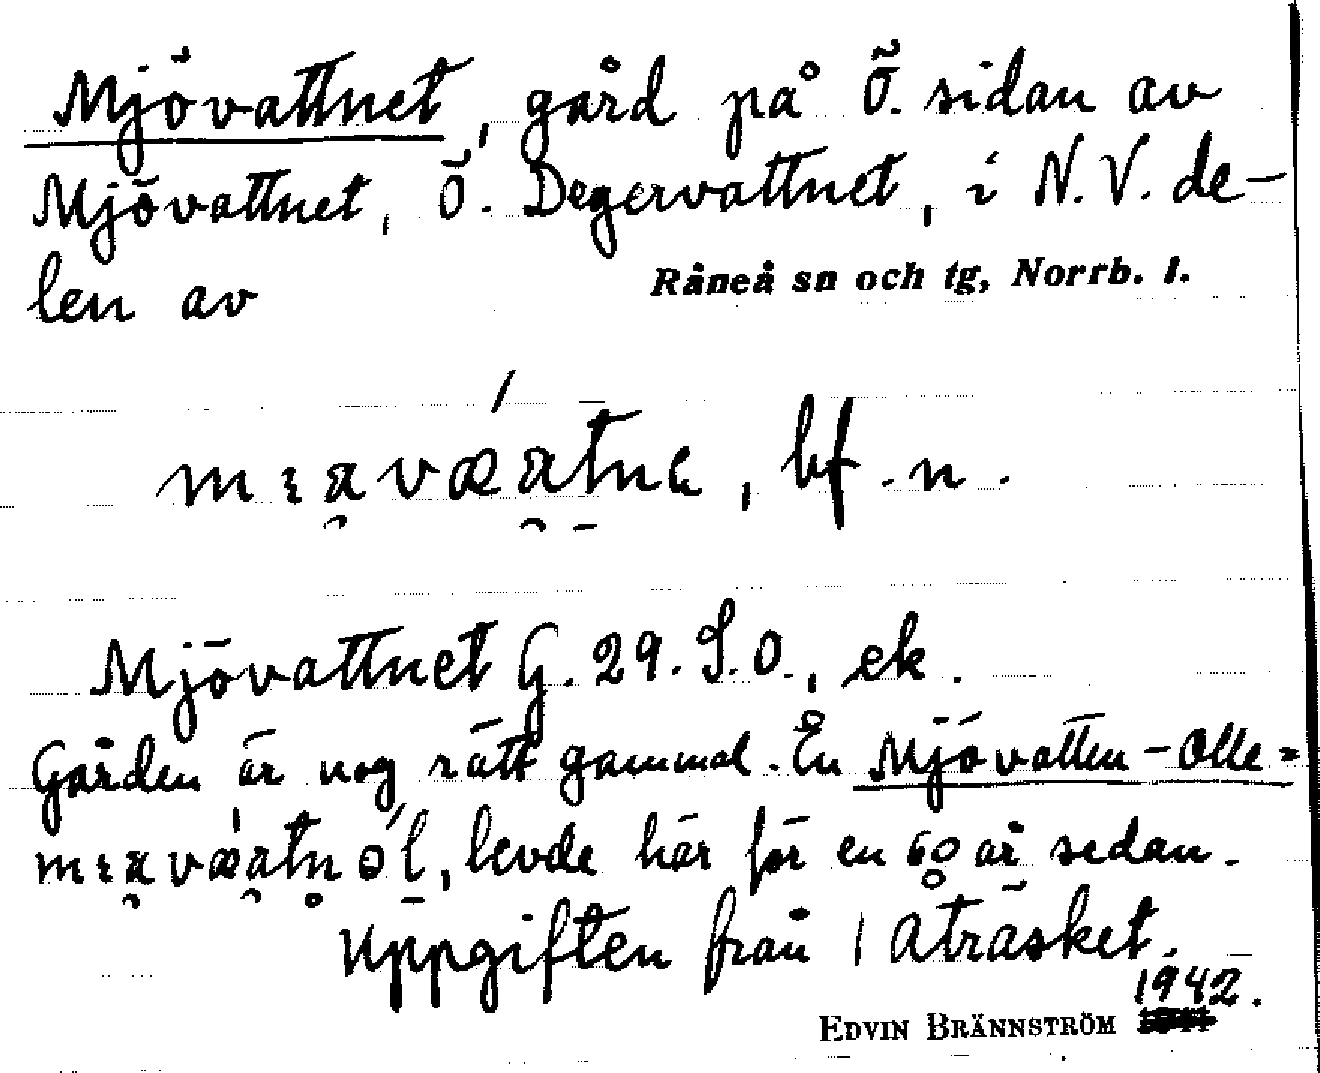 Mjövattnet, gård på Ö. sidan av
Mjövattnet, Ö. Degervattnet, i N.V. de-
len av Råneå sn och tg, Norrb. l.
bf. n.
Mjövattnet G. 29. S.O., ek.
Gården är nog rätt gammal. En Mjövatten-Olle =
levde här för en 60 år sedan.
Uppgiften från Åträsket.
1942.
EDVIN BRÄNNSTRÖM